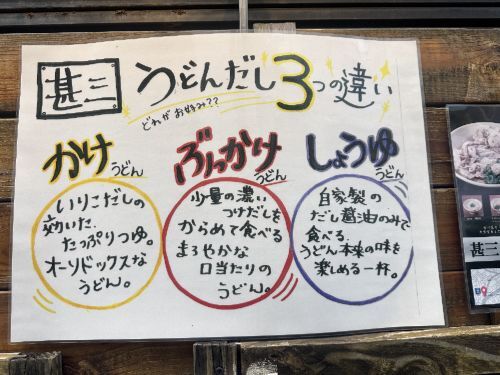 甚三
うどんだし3つの違い
どれがお好み??
かけうどん
いりこだしの
効いた
たっぷりつゆ。
オーソドックスな
うどん。
ぶっかけうどん
少量の濃い
つけだしを
からめて食べる
まろやかな
口当たりの
うどん。
しょうゆうどん
自家製の
だし醤油のみで
食べる
うどん本来の味を
楽しめる一杯。
甚三